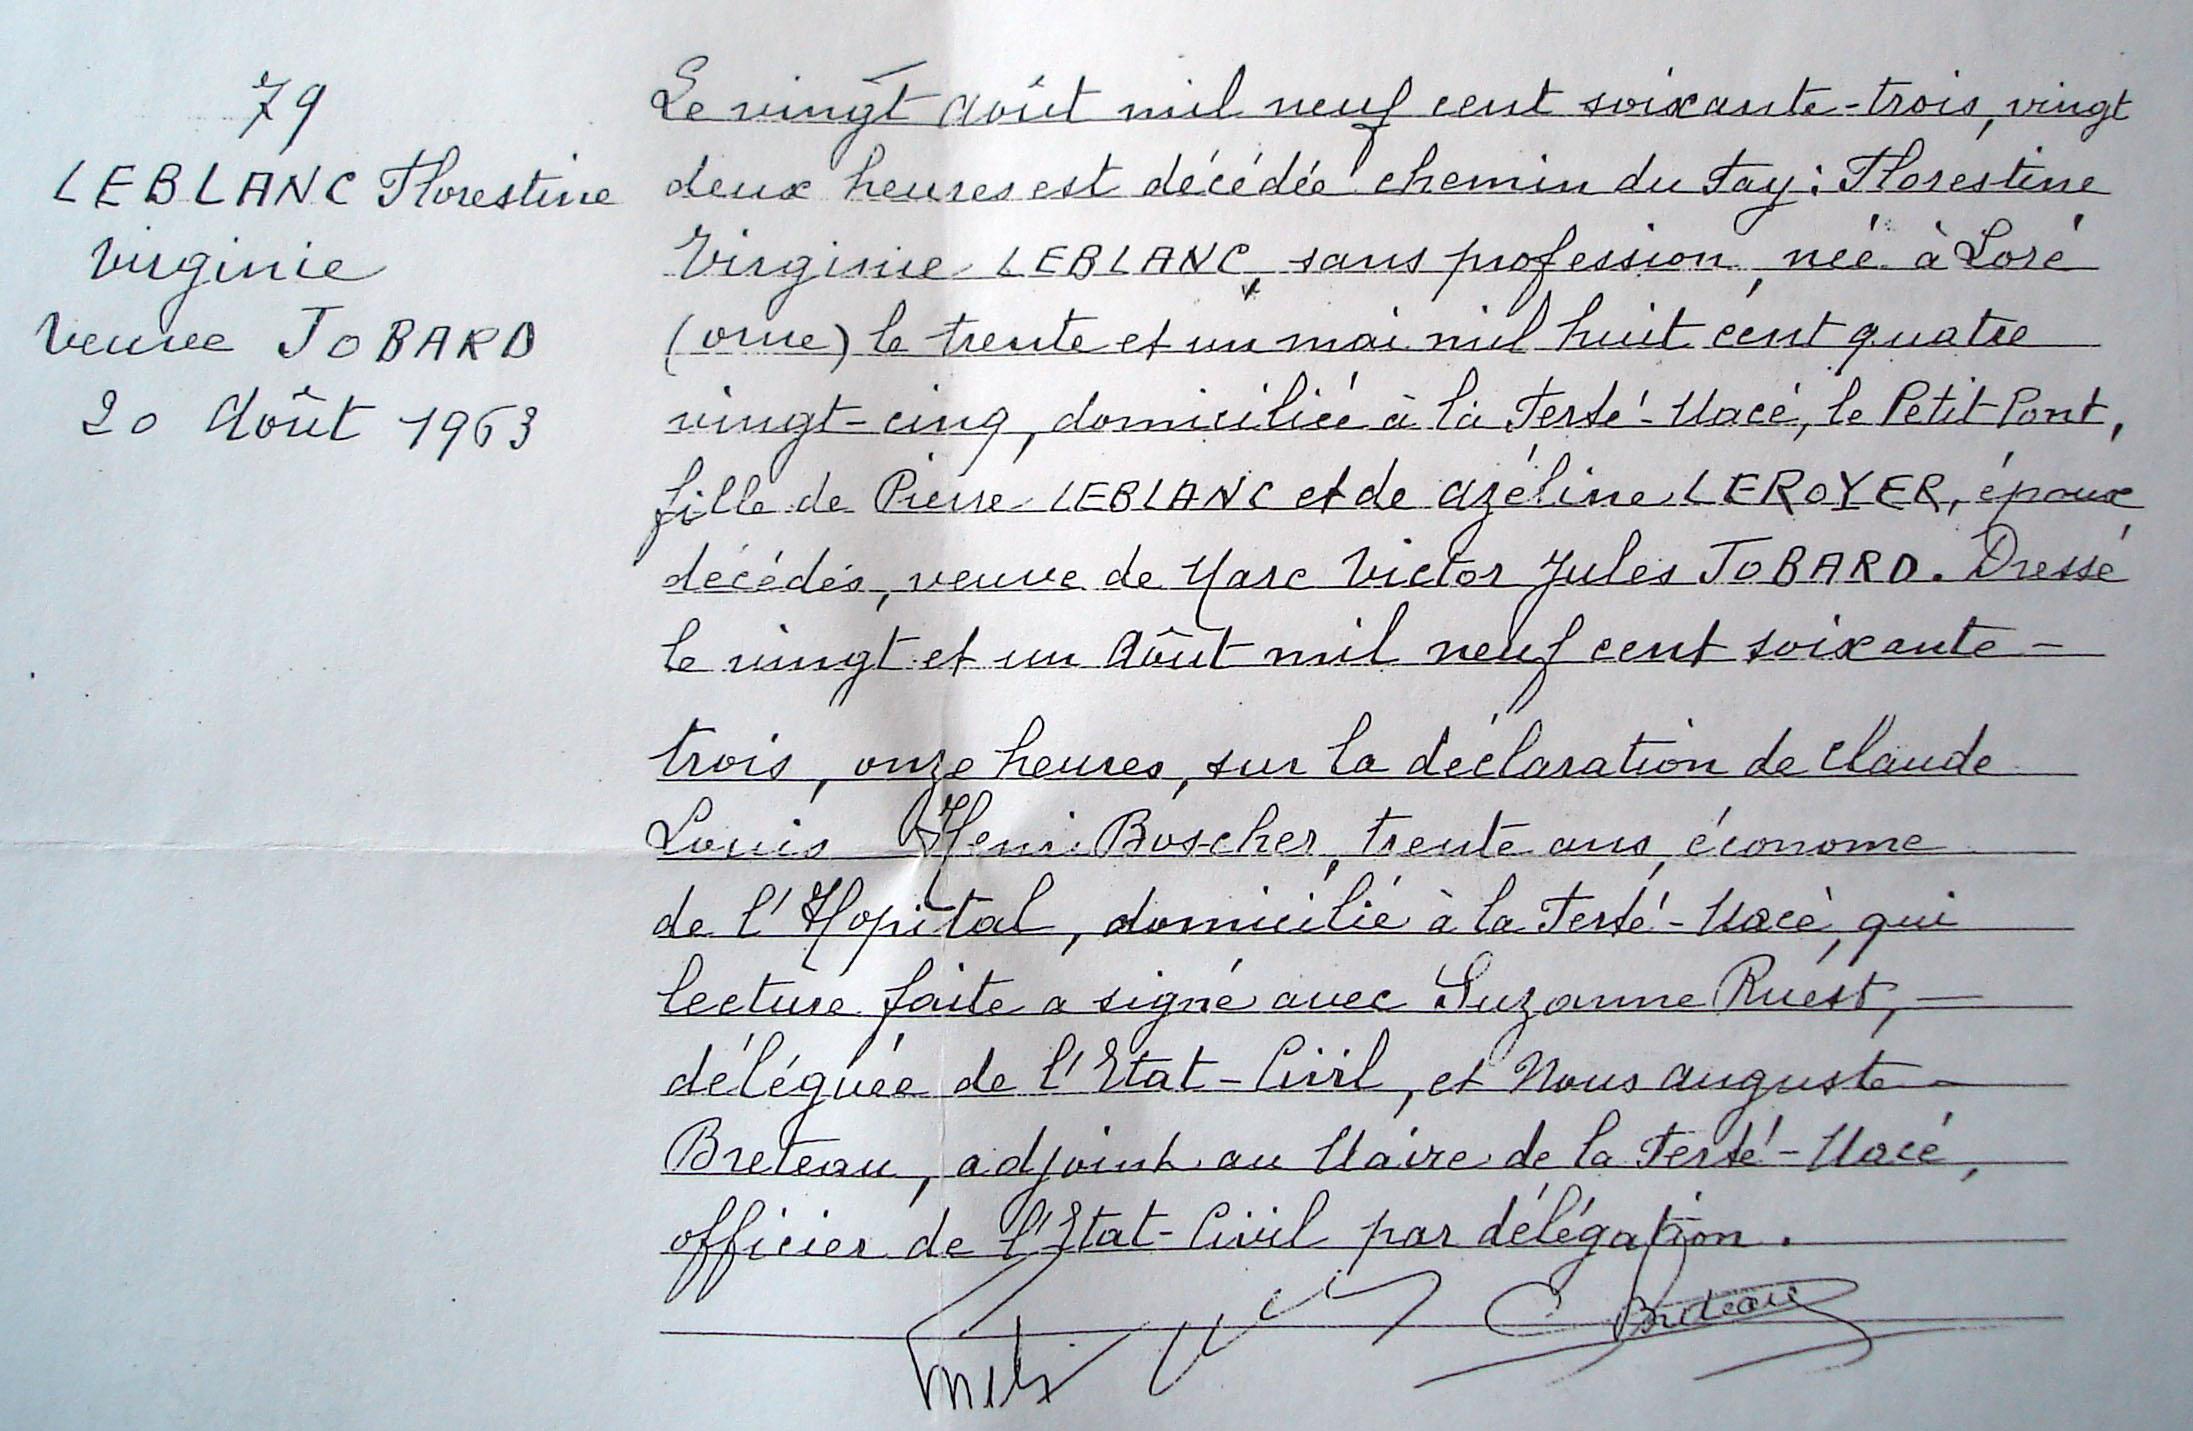 79
LEBLANC Florestine
Virginie
Veuve JOBARD
20 Août 1963
Le vingt Août mil neuf cent soixante-trois, vingt
deux heures est décédée chemin du Fay : Florestine
Virginie LEBLANC, sans profession, née à Loré
(orne) le trente et un mai mil huit cent quatre
vingt-cinq, domiciliée à la Ferté-Macé, le Petit Pont,
fille de Pierre LEBLANC et de Azéline LEROYER, époux
décédés, veuve de Marc Victor Jules JOBARD. Dressé
le vingt et un Août mil neuf cent soixante-
trois, onze heures, sur la déclaration de Claude
Louis Henri Boscher, trente ans, économe
de l'Hopital, domicilié à la Ferté-Macé, qui
lecture faite a signé avec Suzanne Ruest,
déléguée de l'Etat-Civil, et Nous Auguste
Breteau, adjoint au Maire de la Ferté-Macé,
officier de l'Etat-Civil par délégation.
Breteau